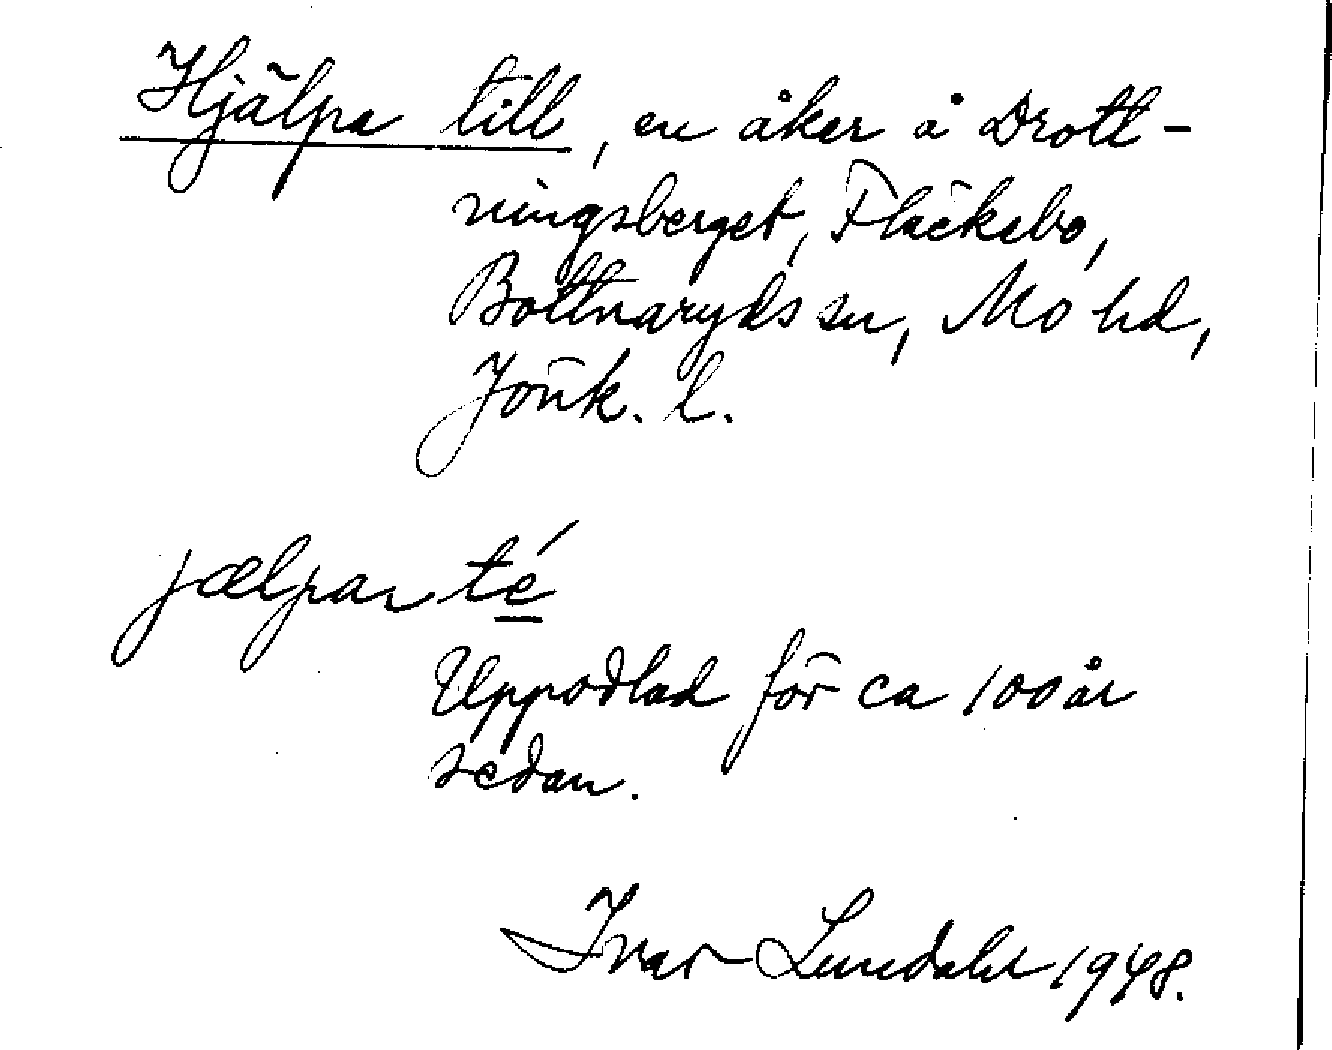 Hjälpa till, en åker å Drott-
ningsberget, Fläckebo,
Bottnaryds sn, Mo hd,
Jönk. l.
jælpar té
Uppodlad för ca 100 år
sedan.
Ivar Lundahl 1948.